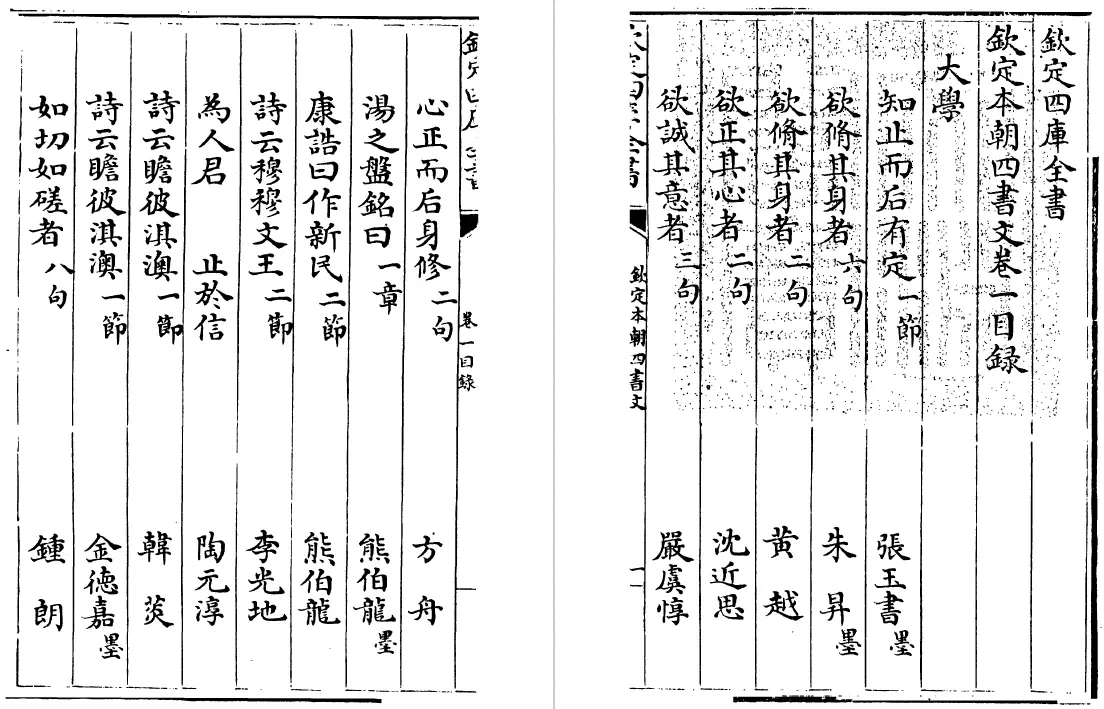 欽定四庫全書
欽定本朝四書文卷一目録
大學
知止而后有定一節 張玉書墨
欲脩其身者六句 朱昇墨
欲脩其身者二句 黄越
欲正其心者二句 沈近思
欲誠其意者三句 嚴虞惇
欽定四庫全書 欽定本朝四書文 一
欽定四庫全書 卷一目錄
心正而后身修二句 方舟
湯之盤銘曰一章 熊伯龍墨
康誥曰作新民二節 熊伯龍
詩云穆穆文王二節 李光地
為人君 止於信 陶元淳
詩云瞻彼淇澳一節 韓菼
詩云瞻彼淇澳一節 金德嘉墨
如切如磋者八句 鍾朗